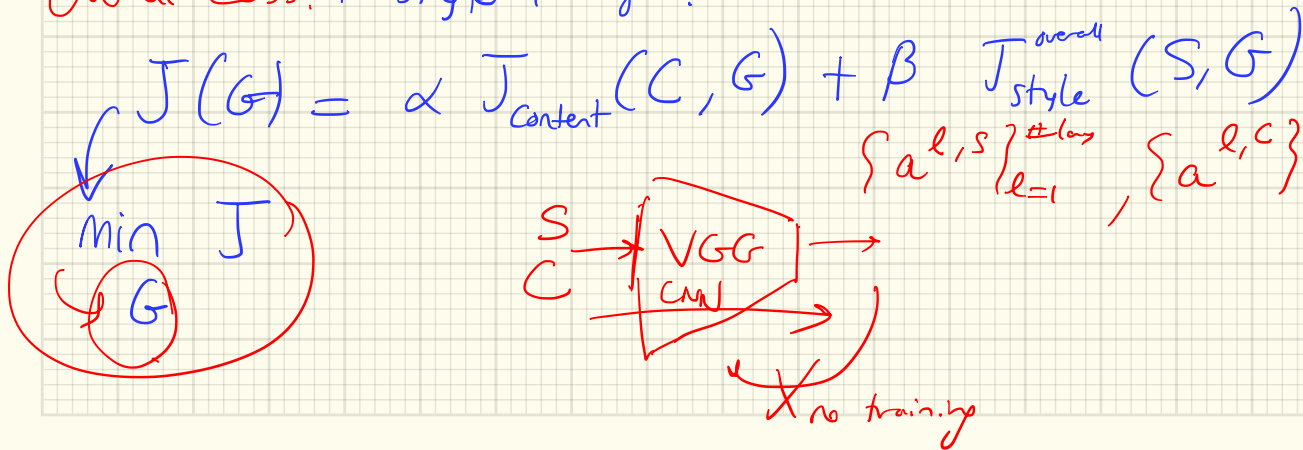 J(G) = α J_content (C, G) + β J_style^overall (S, G)
{a^{l,S}}_{l=1}^{#lay}, {a^{l,C}}
min_G J
S
C
VGG
CNN
no training